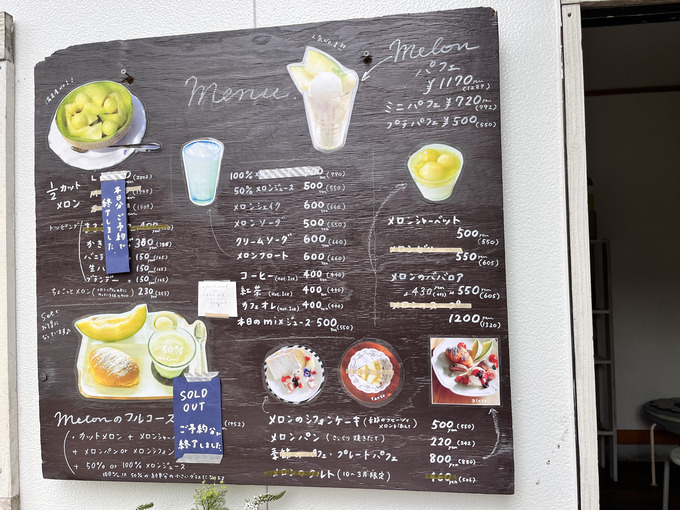 Menu
Melon
パフェ
¥1170yen
(1287)
ミニパフェ ¥720yen(792)
プチパフェ ¥500(550)
1/2カット
メロン
トッピング
本日分ご予約で
終了しました
バニ
生ハ
ブランデー 150(165)
ちょこっとメロン 230(253)
100%
50%メロンジュース 500(550)
メロンシェイク 600(660)
メロンソーダ 500(550)
クリームソーダ 600(660)
メロンフロート 600(660)
コーヒー(Hot.Ice) 400(440)
紅茶(Hot.Ice) 400(440)
カフェオレ(Hot.Ice) 400(440)
本日のmixジュース 500(550)
メロンシャーベット
500yen(550)
550(605)
メロンのババロア
430yen 550(605)
1200(1320)
50%
Melonのフルコース
(1952)
・カットメロン + メロンシャー
+ メロンパン or メロンシフォン
+ 50% or 100% メロンジュース
SOLD
OUT
ご予約分で
終了しました
Tarte
Plate!
メロンのシフォンケーキ 500(550)
メロンパン(さっくり焼きたて) 220(242)
プレートパフェ 800yen(880)
(10〜3月限定) 460(506)